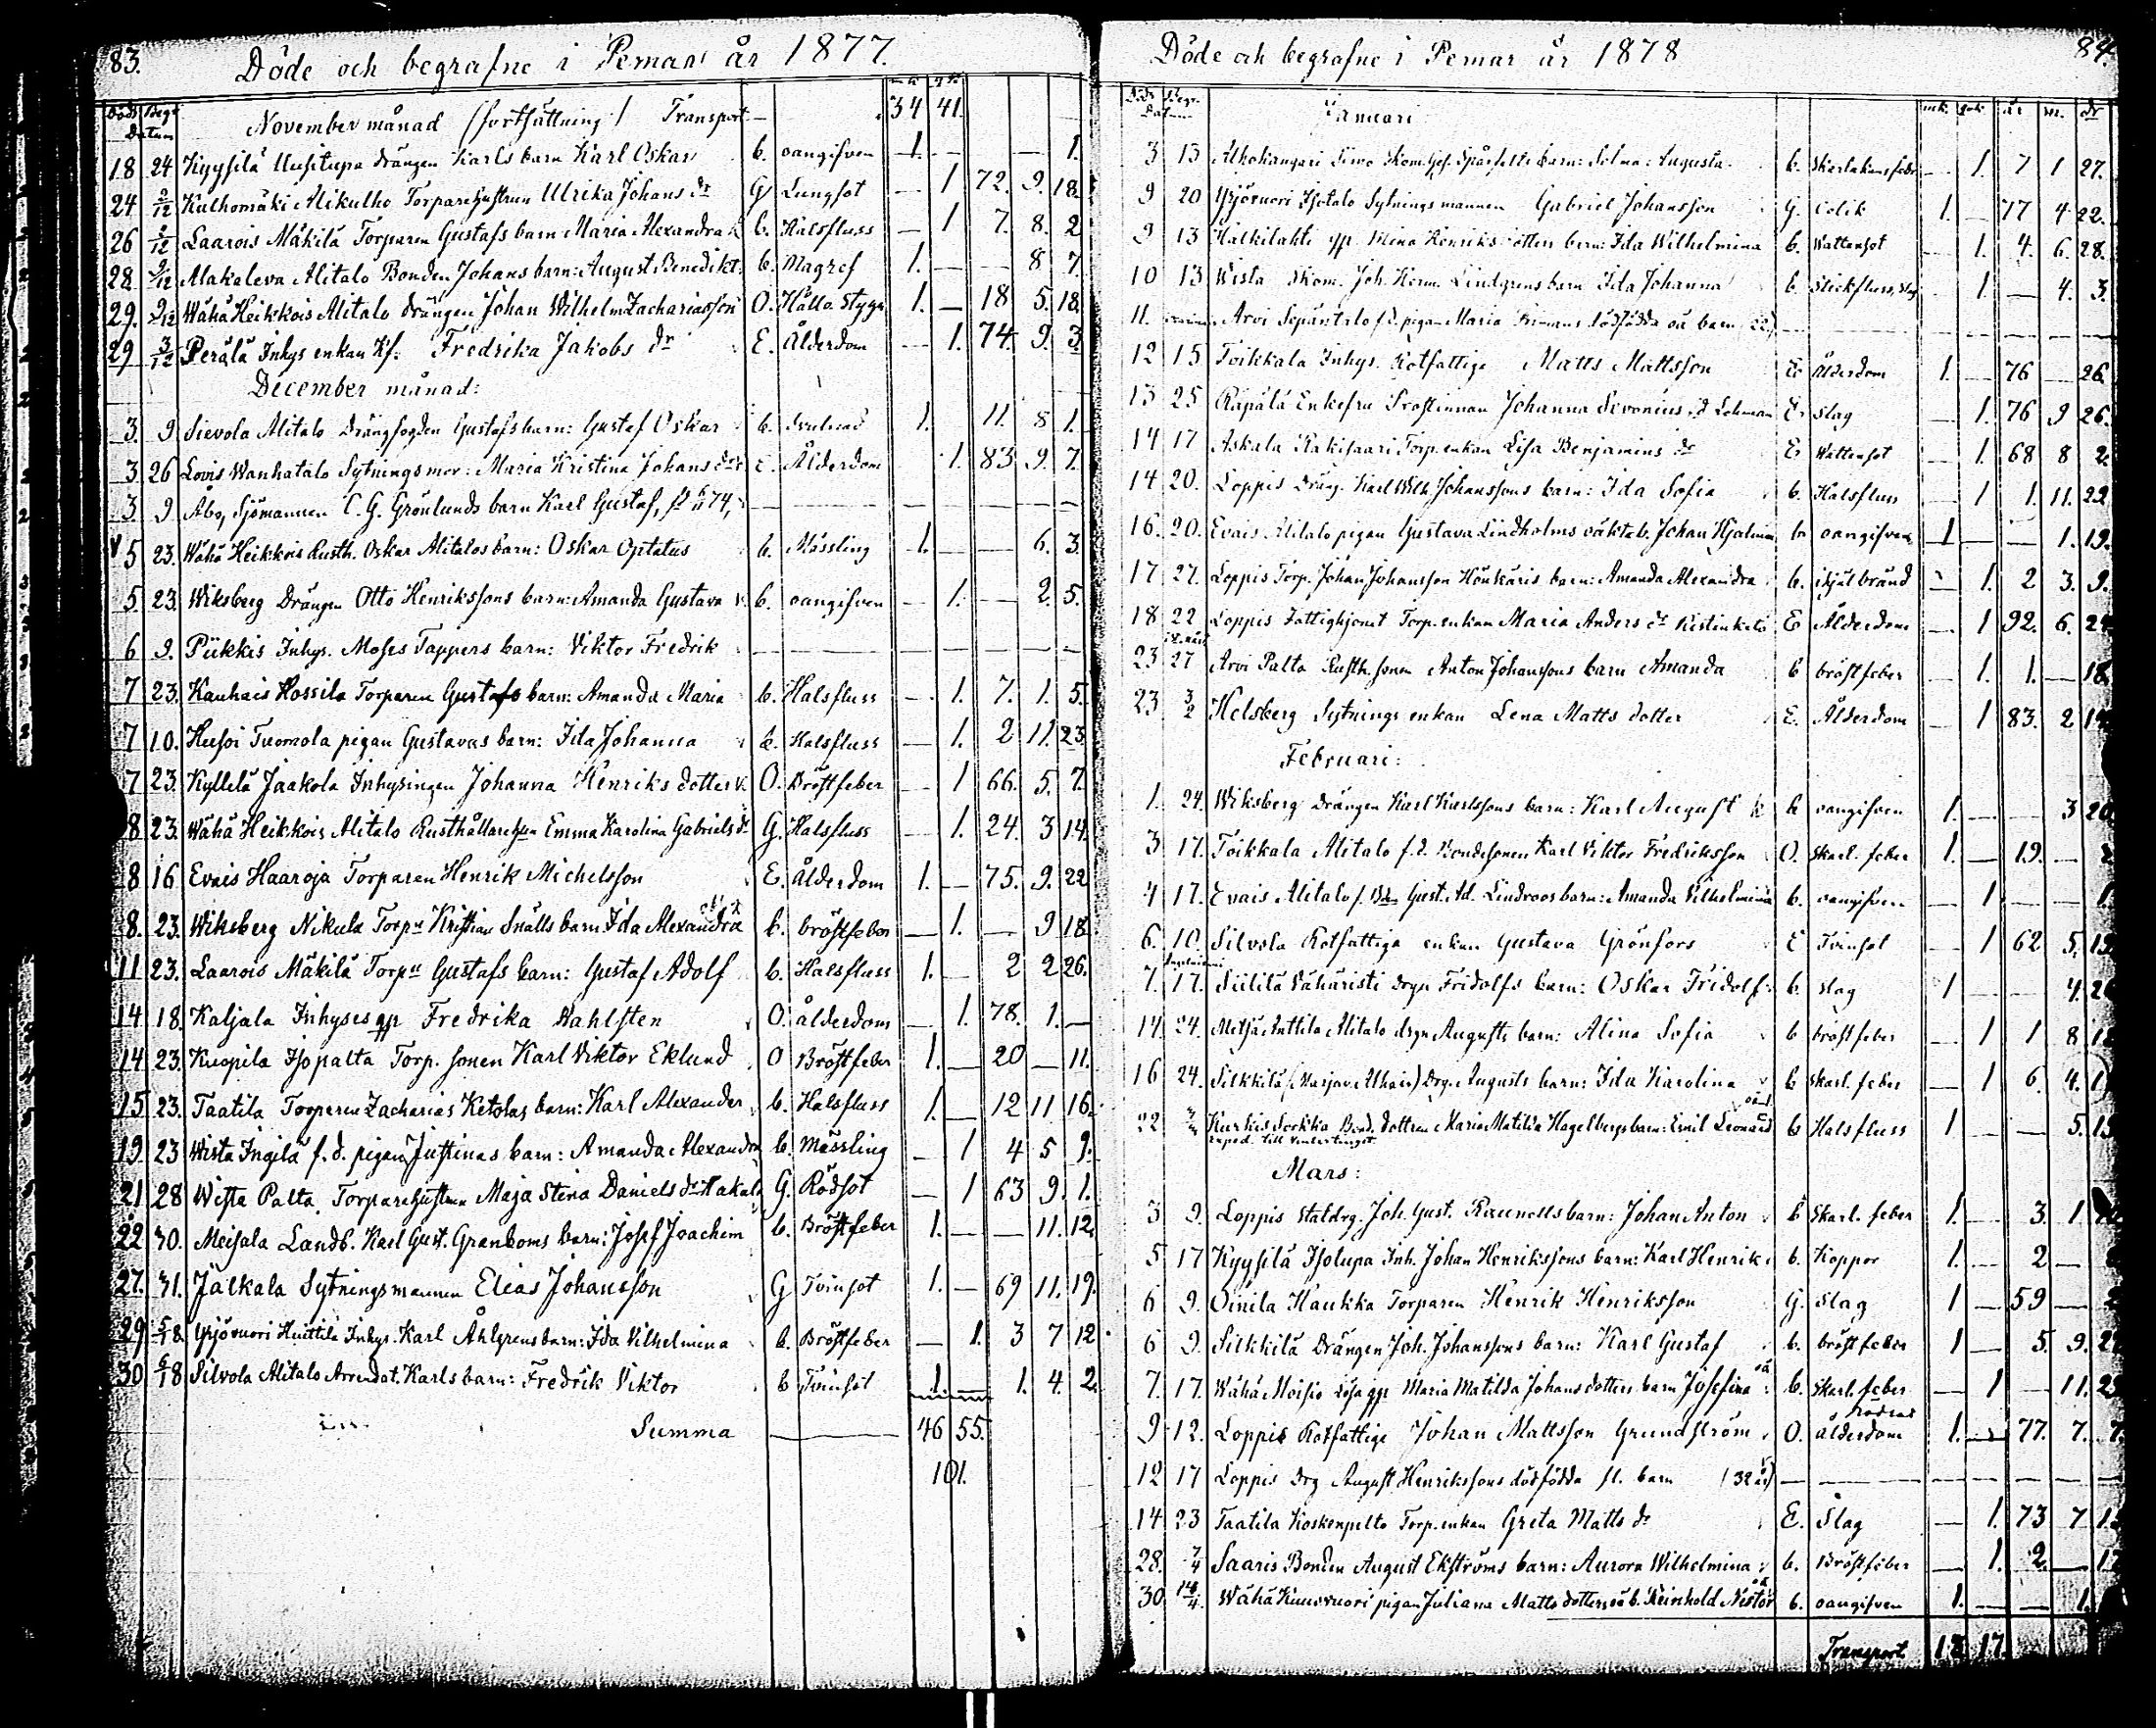 83.
Döde och begrafne i Pemar år 1877.
Döds Begr. Datum
November månad (fortsättning) Transport — 34 41
18 24 Kyysilä Uusitupa drängen Karls barn Karl Oskar b. oangifven 1. — — 1.
24 2/12 Kulhomäki Alikulho Torparehustrun Ulrika Johans dr G Lungsot — 1 72. 9. 18.
26 2/12 Laarois Mäkilä Torparen Gustafs barn Maria Alexandra b. Halsfluss — 1 7. 8. 2
28 9/12 Makaleva Alitalo Bonden Johans barn: August Benedikt b. Magref 1. — — 8 7.
29. 9/12 Wähä Heikkois Alitalo drängen Johan Wilhelm Zachariasson O. Håll o. Stygn 1. — 18 5. 18.
29 3/12 Perälä Inhys enkan Kf. Fredrika Jakobs dr E. Ålderdom — 1. 74. 9. 3.
December månad:
3. 9 Sievola Alitalo Drängfogden Gustafs barn: Gustaf Oskar b. 1. 11. 8 1.
3. 26 Lovis Wanhatalo Sytningsmor: Maria Kristina Johans dr E. Ålderdom 1. 83 9. 7.
3. 9 Åbo, Sjömannen C. G. Grönlunds barn Karl Gustaf, 74,
5 23. Wähä Heikkois Rusth. Oskar Alitalos barn: Oskar Optatus b. Mässling 1. — — 6. 3.
5. 23. Wiksberg Drängen Otto Henrikssons barn: Amanda Gustava b. oangifven — 1. — 2. 5.
6 9. Piikkis Inhys. Moses Tappers barn: Viktor Fredrik
7 23. Kauhais Hossila Torparen Gustafs barn: Amanda Maria b. Halsfluss — 1. 7. 1. 5.
7 10. Huisoi Tuomola pigan Gustavas barn: Ida Johanna b. Halsfluss — 1. 2 11. 23.
7 23. Kyllelä Jaakola Inhysingen Johanna Henriks dotter O. Bröstfeber — 1 66. 5. 7.
8 23. Wähä Heikkois Alitalo Rusthållareh Emma Karolina Gabriels dr G. Halsfluss — 1. 24. 3 14.
8 16 Evais Haaroja Torparen Henrik Michelsson E. Ålderdom 1. — 75. 9. 22
8. 23. Wiksberg Nikula Torpn Kristian Snälls barn Ida Alexandra b. bröstfeber — 1. — 9 18
11 23. Laarois Mäkilä Torpn Gustafs barn: Gustaf Adolf b. Halsfluss 1. — 2 2 26.
14 18. Kaljala Inhyses qp Fredrika Wahlsten O. ålderdom — 1. 78. 1. —
14 23. Kuopila Isopalta Torp. sonen Karl Viktor Eklund O Bröstfeber 1. — 20 — 11.
15 23. Taatila Torparen Zacharias Ketolas barn: Karl Alexander b. Halsfluss 1. — 12 11 16.
19. 23 Wista Ingilä f. d. pigan Justinas barn: Amanda Alexandra b. Mässling — 1 4 5 9.
21 28 Wista Palta Torparehustrun Maja Stina Daniels dr Hakala G. Rödsot — 1 63 9. 1.
22 30. Meisala Landb. Karl Gust. Granboms barn: Josef Joachim b. Bröstfeber 1. — — 11. 12.
27. 31. Jalkala Sytningsmannen Elias Johansson G Tvinsot 1. — 69 11. 19.
29 5/18 Yrjövuori Huittila Inhys. Karl Åhlgrens barn: Ida Vilhelmina b. Bröstfeber — 1. 3 7 12.
30 6/18 Silvola Alitalo Arrendat. Karls barn: Fredrik Viktor b Tvinsot 1 — 1. 4. 2.
Summa 46 55.
101.
84.
Döde och begrafne i Pemar år 1878
Döds Begr. Datum
Januari mk. qk. år m. dr
3 13 Alhokangari Simo Skom. Ges. Spårfelts barn: Selma Augusta b. Skarlakansfeber 1. 7 1 27.
9 20 Yrjövuori Isotalo Sytningsmannen Gabriel Johansson G. Colik 1. — 77 4 22.
9 13 Halkilahti qp. Mina Henriks dotters barn: Ida Wilhelmina b. Wattensot — 1. 4. 6. 28.
10 13 Wista Skom. Joh. Herm. Lindgrens barn Ida Johanna b. Stickfluss, Slag 1. — 4. 3.
11. Arvi Sepäntalo f.d. pigan Maria Frimans dödfödda oä barn
12 15 Toikkala Inhys. Rotfattige Matts Mattsson E Ålderdom 1. — 76 — 26.
13 25 Rapala Enkefru Prostinnan Johanna Sevonius f. Lohman E. Slag — 1. 76 9 26.
14 17 Askala Rakisaari Torp. enkan Lisa Benjamins dr E Wattensot 1. 68 8 2.
14 20. Loppis Dräng. Karl Wilh. Johanssons barn: Ida Sofia b. Halsfluss — 1 1. 11. 29.
16. 20. Evais Alitalo pigan Gustava Lindholms oäkta b. Johan Hjalmar b. oangifven 1 — — 1. 19.
17 27. Loppis Torp. Johan Johansson Hönkäris barn: Amanda Alexandra b. ihjälbränd — 1. 2 3. 9.
18 22 Loppis Fattighjonet Torp. enkan Maria Anders dr Ristinketo E Ålderdom — 1 92. 6. 24
23 27 Arvi Palta Rusth. sonen Anton Johanssons barn Amanda b bröstfeber — 1. 1. — 18
23 3/2 Helsberg Sytnings enkan Lena Matts dotter E. Ålderdom — 1 83. 2 19
Februari:
1. 24. Wiksberg Drängen Karl Karlssons barn: Karl August b oangifven 1. — — 3 20
3 17. Toikkala Alitalo f. d. Bondesonen Karl Viktor Fredriksson O. Skarl. feber 1. — 19. —
4 17. Evais Alitalo f. Gust. Ad. Lindroos barn: Amanda Vilhelmina b. oangifven — 1 — — 1.
6. 10. Silvola Rotfattiga enkan Gustava Grönfors E Tvinsot — 1 62 5. 19
7. 17. Siililä Vähäristi Drgn Fridolfs barn: Oskar Fridolf b. slag 1 — — 4. 26
14. 24. Metsä Anttila Alitalo drgn Augusts barn: Alina Sofia b bröstfeber — 1 1 8 18
16 24. Silkkilä (Marjav. Alhais) Drgn Augusts barn: Ida Karolina b Skarl. feber — 1 6 4. 1
22 Kurkis Sorkka Bond. dottren Maria Matilda Hagelbergs barn: Emil Leonard b Halsfluss 1 — — 5. 15
Mars:
3 9. Loppis Staldrg. Joh. Gust. Raunells barn: Johan Anton b Skarl. feber 1. — 3. 1
5 17 Kyysilä Isolupa Inh. Johan Henrikssons barn: Karl Henrik b. Koppor 1. — 2 —
6 9. Oinila Haukka Torparen Henrik Henriksson G. Slag 1 — 59 —
6 9. Silkkilä Drängen Joh. Johanssons barn: Karl Gustaf b. bröstfeber 1 — 5. 9. 27
7. 17. Wähä Moisio Lösa qp Maria Matilda Johans dotters barn Josefina oä b. Skarl. feber — 1 — 11. 25
9 12. Loppis Rotfattige Johan Mattsson Grundström O. ålderdom 1. — 77. 7. 7.
12 17 Loppis Drg August Henrikssons dödfödda fl. barn (32 år)
14 23 Taatila Koskenpelto Torp. enkan Greta Matts dr E. Slag — 1. 73 7 1
28. 7/4 Saaris Bonden August Ekströms barn: Aurora Wilhelmina b. Bröstfeber — 1. 2. — 17
30 14/4. Wähä Kuusvuori pigan Juliana Matts dotters oä b. Reinhold Nestor b. oangifven 1. — — 1.
Transport 17.